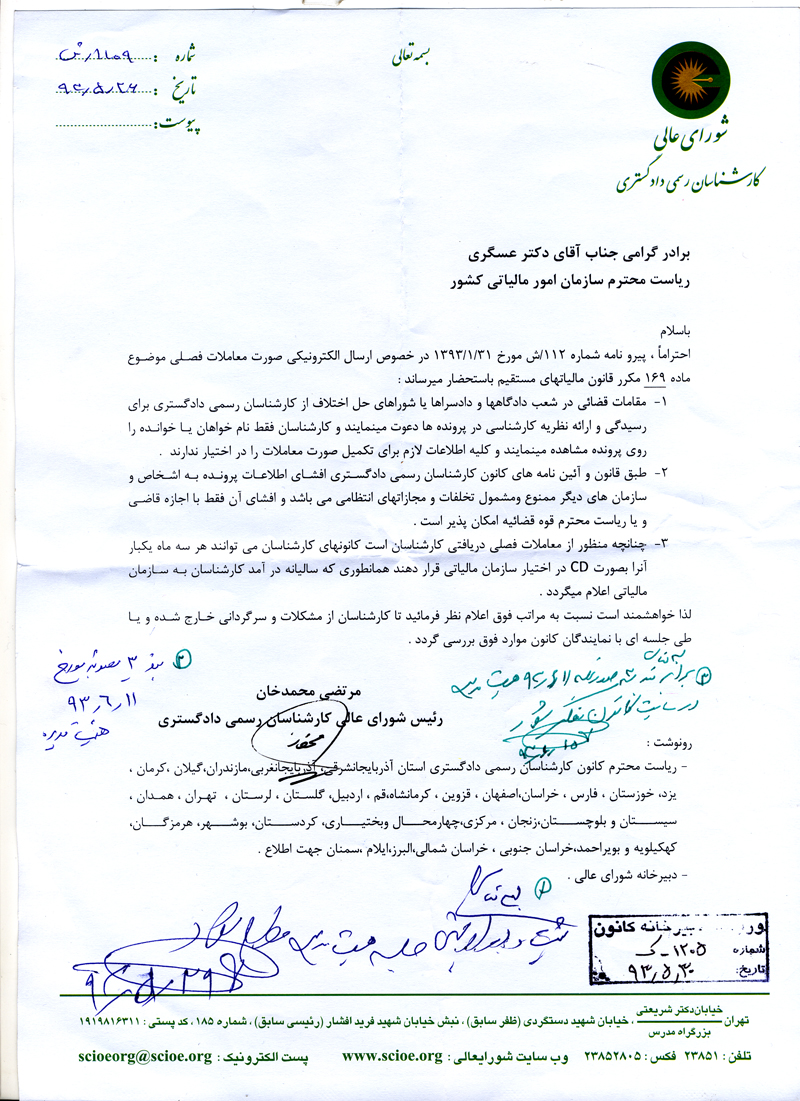 بسمه تعالی
شماره : ۱۱۵۹/ش
تاریخ : ۹۳/۵/۲۶
پیوست:
شورای عالی
کارشناسان رسمی دادگستری
برادر گرامی جناب آقای دکتر عسگری
ریاست محترم سازمان امور مالیاتی کشور
باسلام
احتراماً ، پیرو نامه شماره ۱۱۲/ش مورخ ۱۳۹۳/۱/۳۱ در خصوص ارسال الکترونیکی صورت معاملات فصلی موضوع
ماده ۱۶۹ مکرر قانون مالیاتهای مستقیم باستحضار میرساند :
۱- مقامات قضائی در شعب دادگاهها و دادسراها یا شوراهای حل اختلاف از کارشناسان رسمی دادگستری برای
رسیدگی و ارائه نظریه کارشناسی در پرونده ها دعوت مینمایند و کارشناسان فقط نام خواهان یا خوانده را
روی پرونده مشاهده مینمایند و کلیه اطلاعات لازم برای تکمیل صورت معاملات را در اختیار ندارند .
۲- طبق قانون و آئین نامه های کانون کارشناسان رسمی دادگستری افشای اطلاعات پرونده به اشخاص و
سازمان های دیگر ممنوع ومشمول تخلفات و مجازاتهای انتظامی می باشد و افشای آن فقط با اجازه قاضی
و یا ریاست محترم قوه قضائیه امکان پذیر است .
۳- چنانچه منظور از معاملات فصلی دریافتی کارشناسان است کانونهای کارشناسان می توانند هر سه ماه یکبار
آنرا بصورت CD در اختیار سازمان مالیاتی قرار دهند همانطوری که سالیانه در آمد کارشناسان به سازمان
مالیاتی اعلام میگردد .
لذا خواهشمند است نسبت به مراتب فوق اعلام نظر فرمائید تا کارشناسان از مشکلات و سرگردانی خارج شده و یا
طی جلسه ای با نمایندگان کانون موارد فوق بررسی گردد .
۲ بند ۳ مصوبه مورخ
۹۳/۶/۱۱
هیئت مدیره
مرتضی محمدخان
رئیس شورای عالی کارشناسان رسمی دادگستری
۳
رونوشت :
- ریاست محترم کانون کارشناسان رسمی دادگستری استان آذربایجانشرقی، آذربایجانغربی،مازندران،گیلان ،کرمان ،
یزد، خوزستان ، فارس ، خراسان،اصفهان ، قزوین ، کرمانشاه،قم ، اردبیل، گلستان ، لرستان ، تهران ، همدان ،
سیستان و بلوچستان،زنجان ، مرکزی،چهارمحال وبختیاری، کردستان، بوشهر، هرمزگان،
کهکیلویه و بویراحمد،خراسان جنوبی ، خراسان شمالی،البرز،ایلام ،سمنان جهت اطلاع .
- دبیرخانه شورای عالی .
۱
جلسه هیئت مدیره
دبیرخانه کانون
شماره ۱۲۰۵-ک
تاریخ: ۹۳/۵/۳۰
تهران خیابان دکتر شریعتی بزرگراه مدرس ، خیابان شهید دستگردی (ظفر سابق) ، نبش خیابان شهید فرید افشار (رئیسی سابق) ، شماره ۱۸۵ ، کد پستی : ۱۹۱۹۸۱۶۳۱۱
تلفن : ۲۳۸۵۱ فکس : ۲۳۸۵۲۸۰۵ وب سایت شورایعالی : www.scioe.org پست الکترونیک : scioeorg@scioe.org